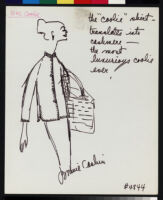 the "coolie" shirt-
translates into
cashmere —
the most
luxurious coolie
ever!
Bonnie Cashin
#4844